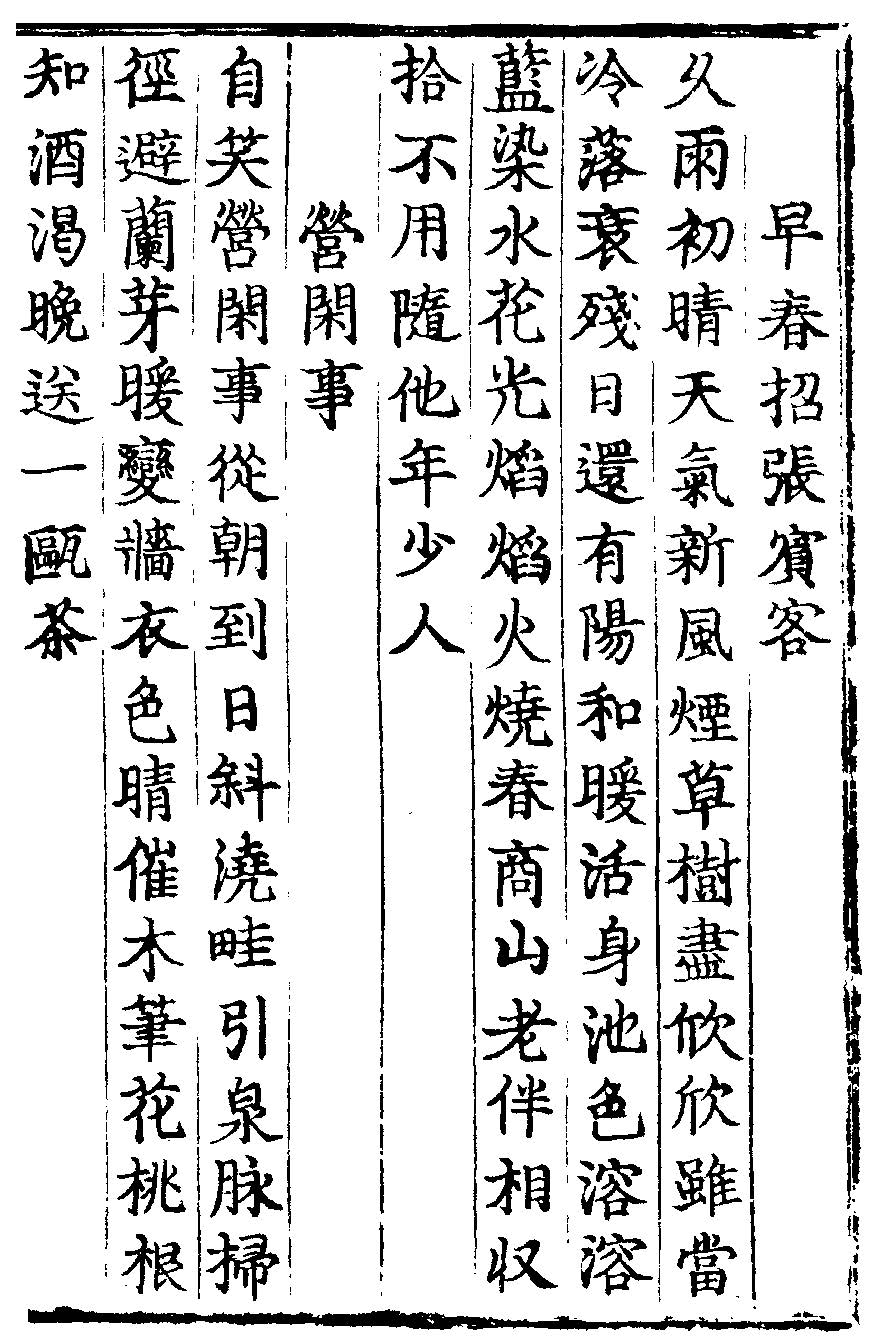 早春招張賓客
久雨初晴天氣新風煙草樹盡欣欣雖當
冷落衰殘日還有陽和暖活身池色溶溶
藍染水花光焰焰火燒春商山老伴相収
拾不用隨他年少人
營閑事
自笑營閑事從朝到日斜澆畦引泉脉掃
徑避蘭芽暖變牆衣色晴催木筆花桃根
知酒渴晚送一甌茶